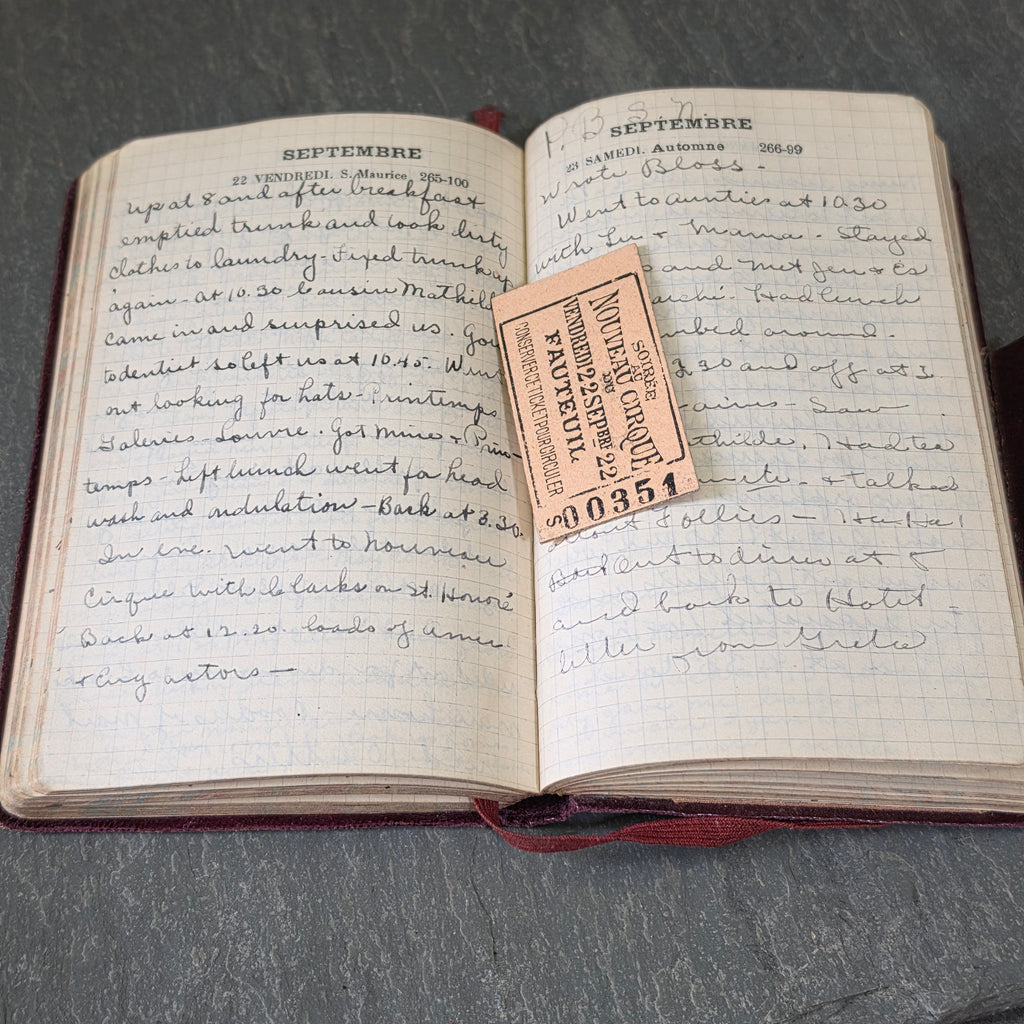 SEPTEMBRE
22 VENDREDI. S. Maurice 265-100
up at 8 and after breakfast
emptied trunk and took dirty
clothes to laundry - Fixed trunk up
again - at 10.30 Cousin Mathild
came in and surprised us. Goi
to dentist so left us at 10.45. Went
out looking for hats - Printemps
Galeries - Louvre. Got mine + Prin-
temps - Left lunch went for head
wash and ondulation - Back at 3.30.
In eve. went to Nouveau
Cirque with Clarks on St. Honoré
Back at 12.20. loads of Amer.
+ Eng actors -
P. B. S. N.
SEPTEMBRE
23 SAMEDI. Automne 266-99
Wrote Bloss -
Went to aunties at 10.30
with Lu + Mama - Stayed
and met Jen + Es
Had lunch
bed around.
2.30 and off at 3.
- Saw
thilde. Had tea
+ talked
about Follies - Ha-Ha!
Out to dinner at 5
and back to Hotel -
letter from Greta
SOIRÉE
AU
NOUVEAU CIRQUE
DU
VENDREDI 22 SEPBRE 22
FAUTEUIL
CONSERVER CE TICKET POUR CIRCULER
S 00351